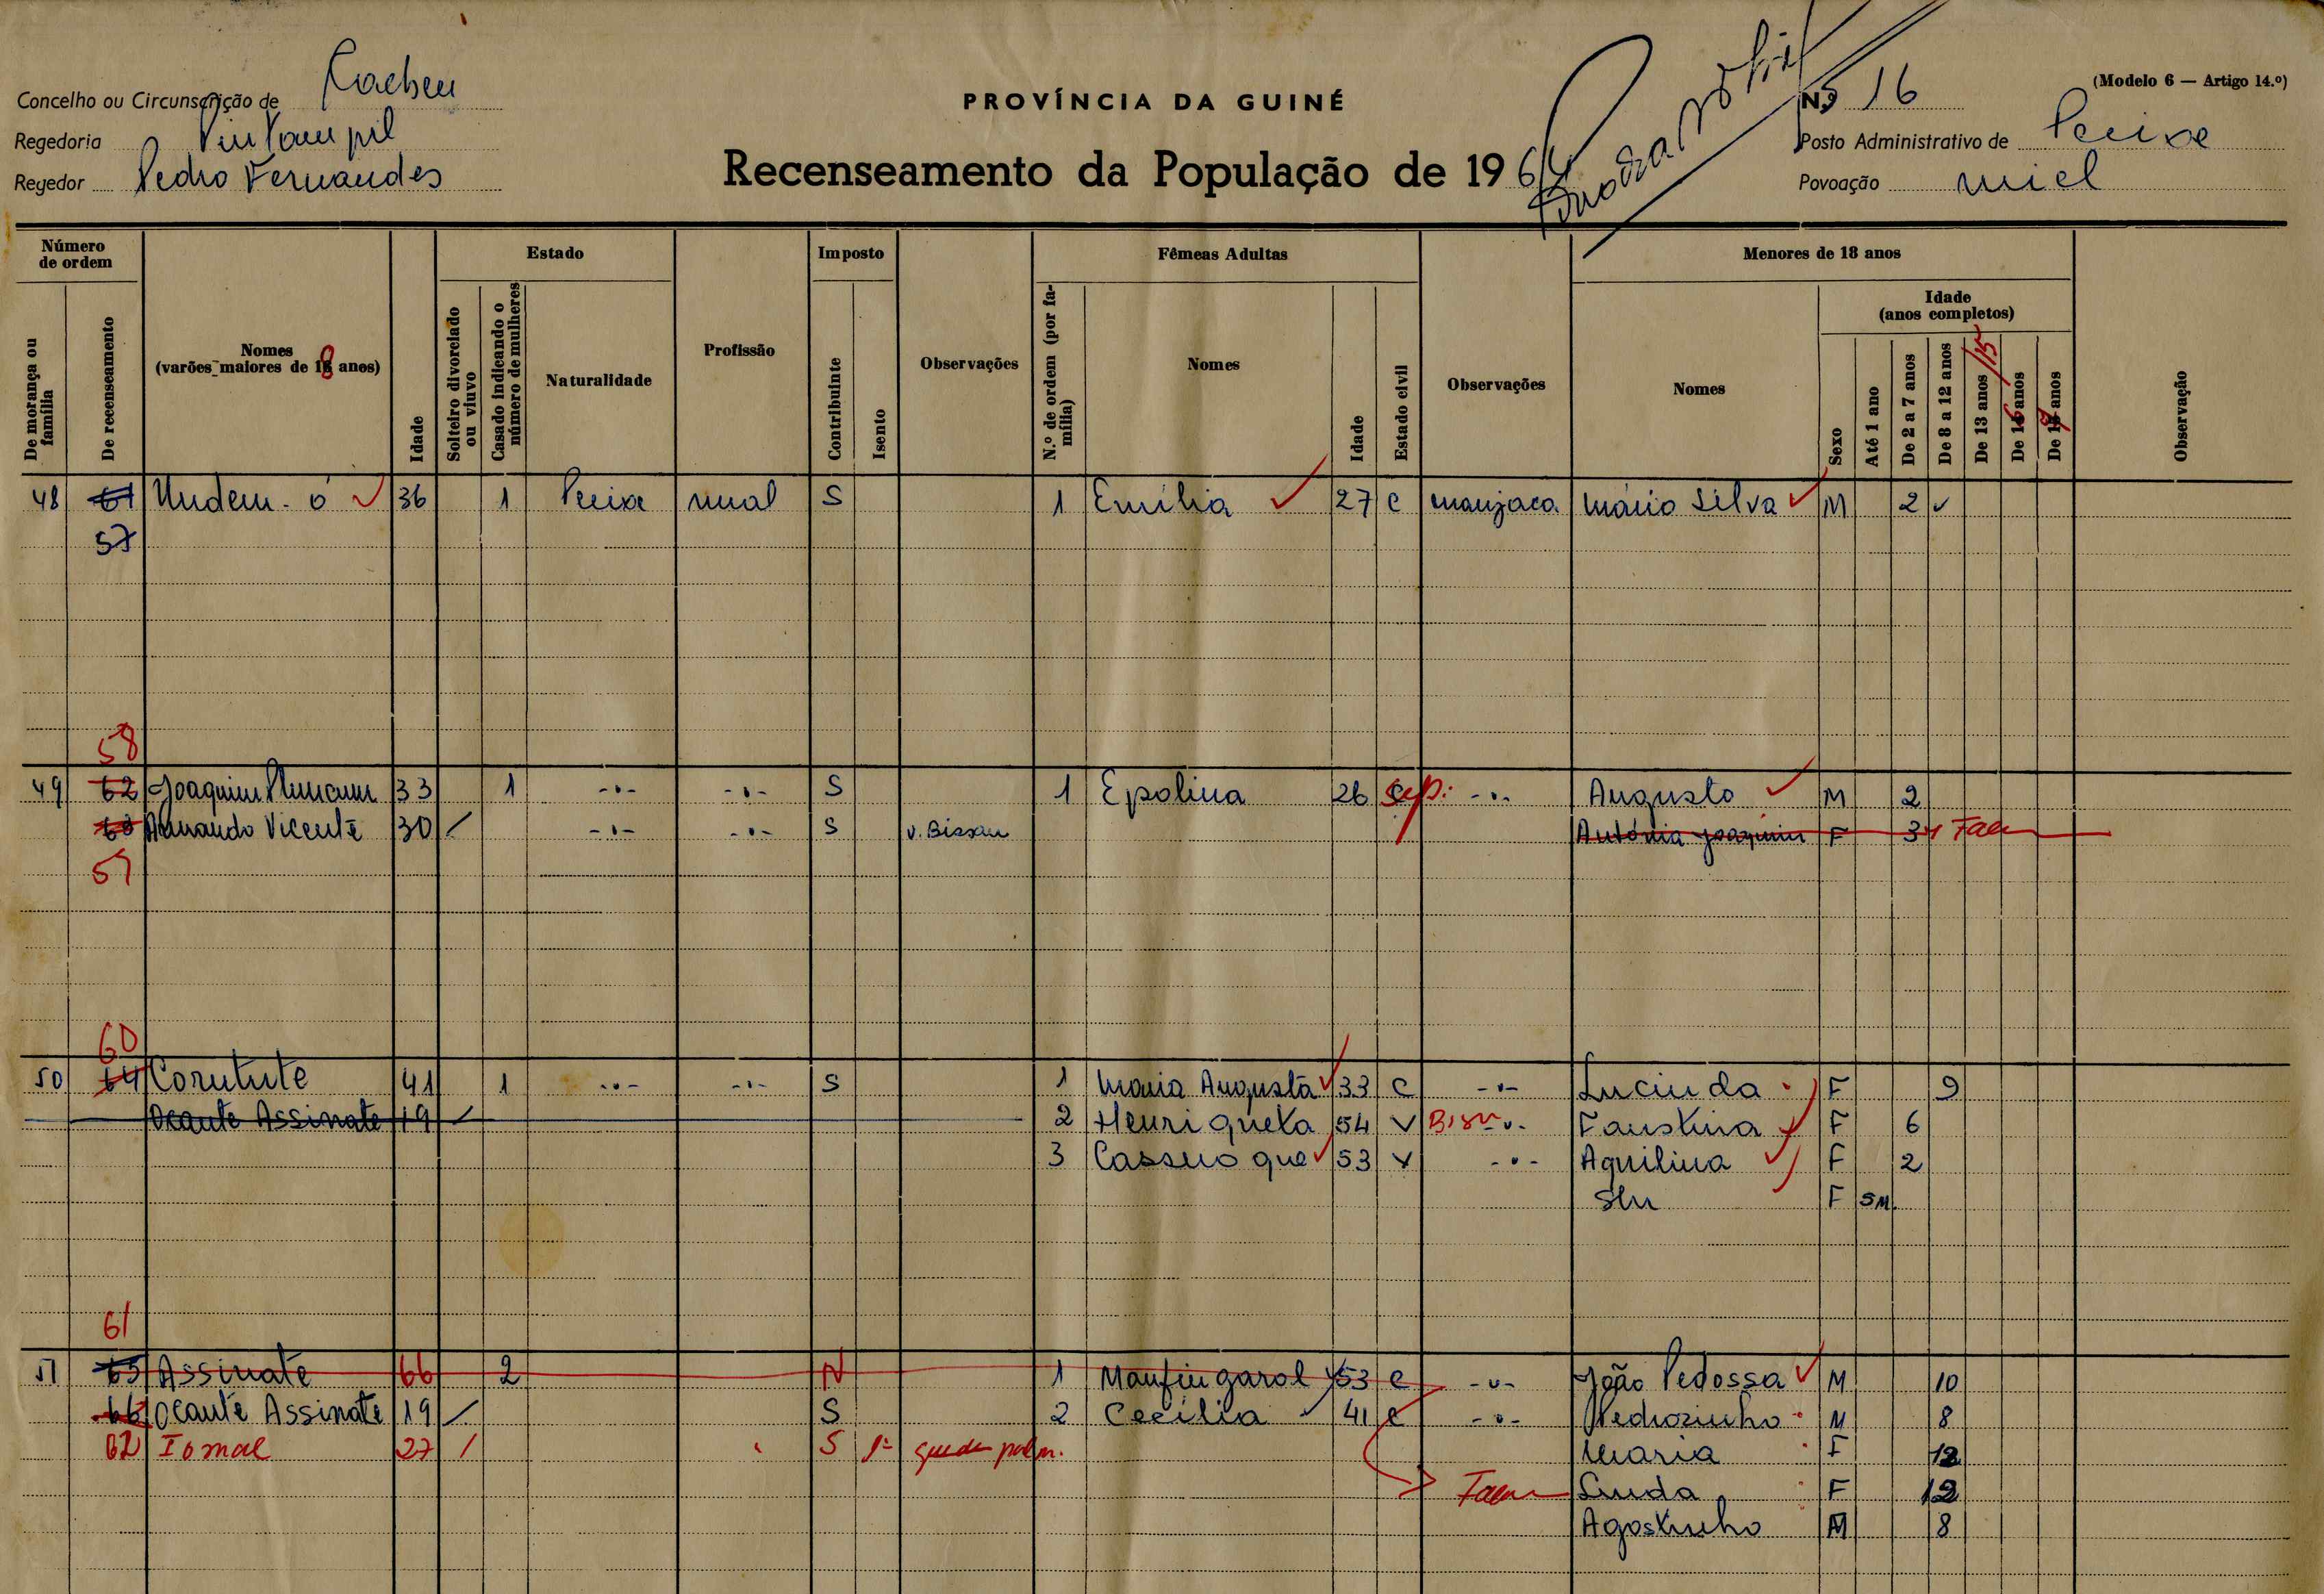 Concelho ou Circunscrição de Cacheu
Regedoria
Regedor Pedro Fernandes
PROVÍNCIA DA GUINÉ
Recenseamento da População de 1964
(Modelo 6 — Artigo 14.º)
N.º 16
Posto Administrativo de Pecixe
Povoação Miel
Número de ordem
De morança ou família
De recenseamento
Nomes (varões maiores de 18 anos)
Idade
Estado
Solteiro divorciado ou viuvo
Casado indicando o número de mulheres
Naturalidade
Profissão
Imposto
Contribuinte
Isento
Observações
Fêmeas Adultas
N.º de ordem (por família)
Nomes
Idade
Estado civil
Observações
Menores de 18 anos
Nomes
Idade (anos completos)
Sexo
Até 1 ano
De 2 a 7 anos
De 8 a 12 anos
De 13 anos /15
De 16 anos
De 17 anos
Observação
48 61 Undem. ó 36 1 Pecixe rual S 1 Emília 27 C manjaca Mário Silva M 2
57
58
49 62 Joaquim 33 1 -"- -"- S 1 Epolina 26 C Sep. -"- Augusto M 2
63 Armando Vicente 30 / -"- -"- S v. Bissau António Joaquim F 3 Falec
59
60
50 64 Corutute 41 1 -"- -"- S 1 Maria Augusta 33 C -"- Lucinda F 9
Ocante Assinate 19 / 2 Henriqueta 54 V -"- Faustina F 6
3 Cassuo que 53 V -"- Aquilina F 2
Slu F 5M.
61
51 65 Assinate 66 2 N 1 Manfingarol 53 C -"- João Pedossa M 10
66 Ocante Assinate 19 / S 2 Cecilia 41 C -"- Pedrozinho M 8
62 Iomal 27 / S Maria F 12
Linda F 12
Agostinho M 8